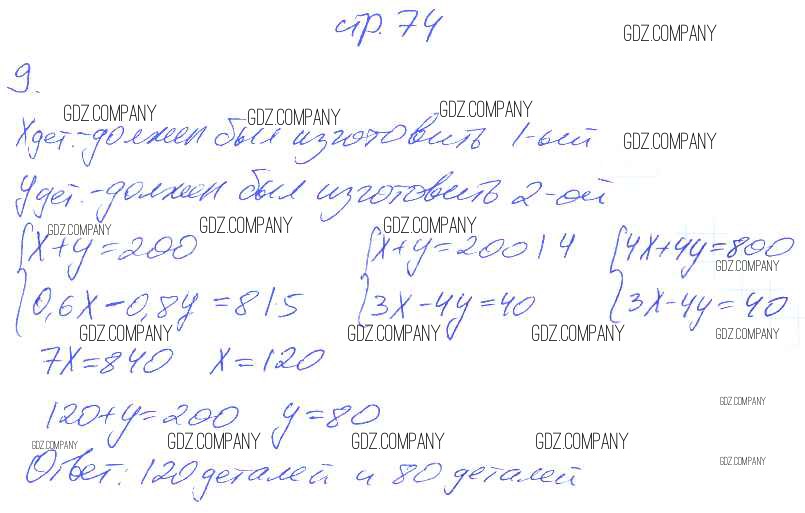 стр. 74
GDZ.COMPANY
9.
GDZ.COMPANY GDZ.COMPANY GDZ.COMPANY
X дет. - должен был изготовить 1-ый
GDZ.COMPANY
У дет. - должен был изготовить 2-ой
GDZ.COMPANY GDZ.COMPANY GDZ.COMPANY
{X+y=200 {X+y=200 | 4 {4X+4y=800
GDZ.COMPANY
0,6X-0,8y=8 | ·5 3X-4y=40 3X-4y=40
GDZ.COMPANY GDZ.COMPANY GDZ.COMPANY GDZ.COMPANY
7X=840 X=120
GDZ.COMPANY
120+y=200 y=80
GDZ.COMPANY GDZ.COMPANY GDZ.COMPANY GDZ.COMPANY
Ответ: 120 деталей и 80 деталей
GDZ.COMPANY